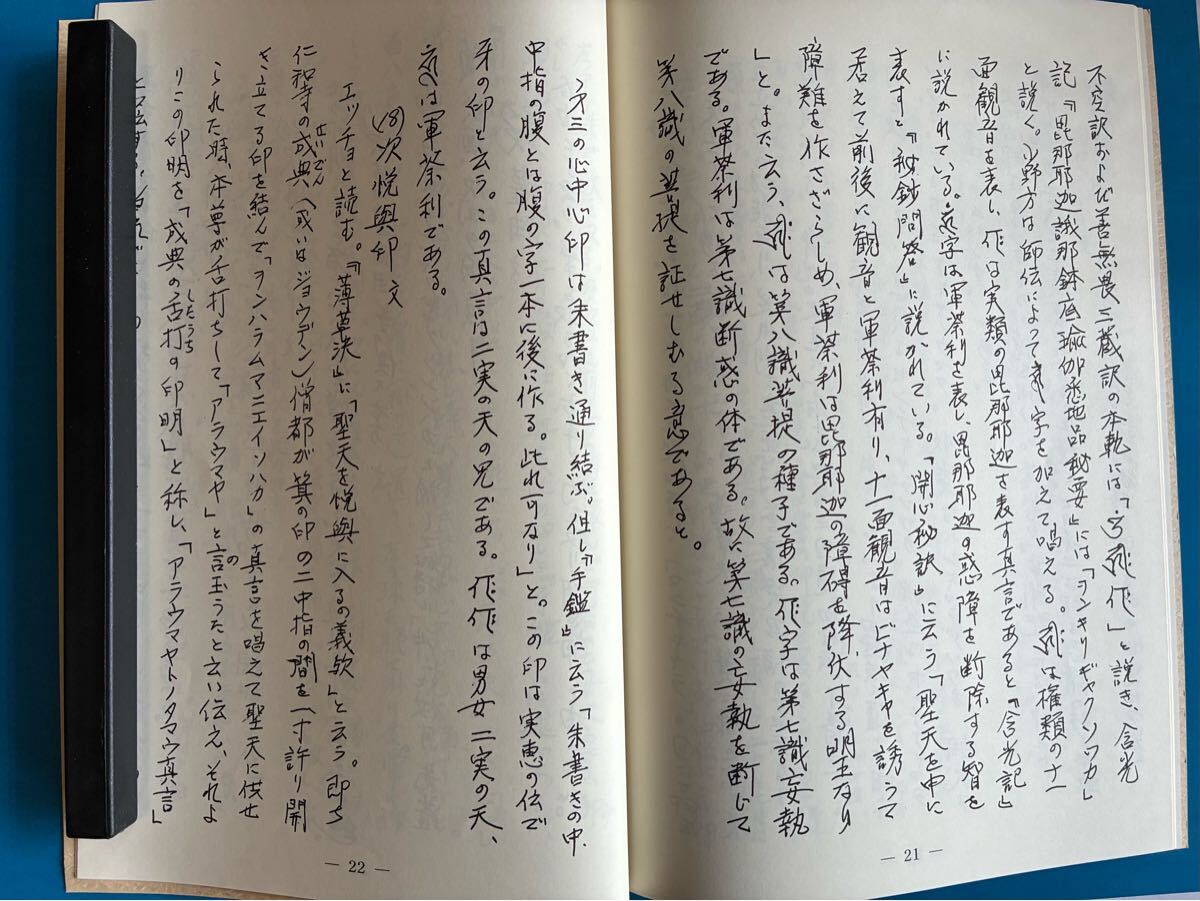 不空訳および善無畏三蔵訳の本軌には「」と説き、含光
記『毘那耶迦誐那鉢底瑜伽悉地品秘要』には「ヲンキリギャクソワカ」
と説く。小野方は師伝によって字を加えて唱える。は権類の十一
面観音を表し、は実類の毘那耶迦を表す真言であると『含光記』
に説かれている。字は軍荼利を表し、毘那耶迦の惑障を断除する智を
表すと『秘鈔問答』に説かれている。『開心秘訣』に云う「聖天を中に
居えて前後に観音と軍荼利有り、十一面観音はビナヤキャを誘うて
障難を作さざらしめ、軍荼利は毘那耶迦の障碍を降伏する明王なり
」と。また云う、は第八識菩提の種子である。字は第七識妄執
である。軍荼利は第七識断惑の体である。故に第七識の妄執を断じて
第八識の菩提を証せしむる意であると。
— 21 —
第三の心中心印は朱書き通り結ぶ。但し『手鑑』に云う「朱書きの中、
中指の腹とは腹の字一本に後に作る。此れ可なり」と。この印は実恵の伝で
牙の印と云う。この真言は二実の天の咒である。は男女二実の天、
は軍荼利である。
(8)次悦與印文
エッチョと読む。『薄草決』に「聖天を悦與に入るの義歟」と云う。即ち
仁和寺の成典(せいでん)(或いはジョウデン)僧都が箕の印の二中指の間を一寸許り開
き立てる印を結んで「ヲンハラムマニエイソハカ」の真言を唱えて聖天に供せ
られた時、本尊が舌打ちして「アラウマヤ」と言(の)玉うたと云い伝え、それよ
りこの印明を「成典の舌打(したうち)の印明」と称し、「アラウマヤトノタマウ真言」
— 22 —